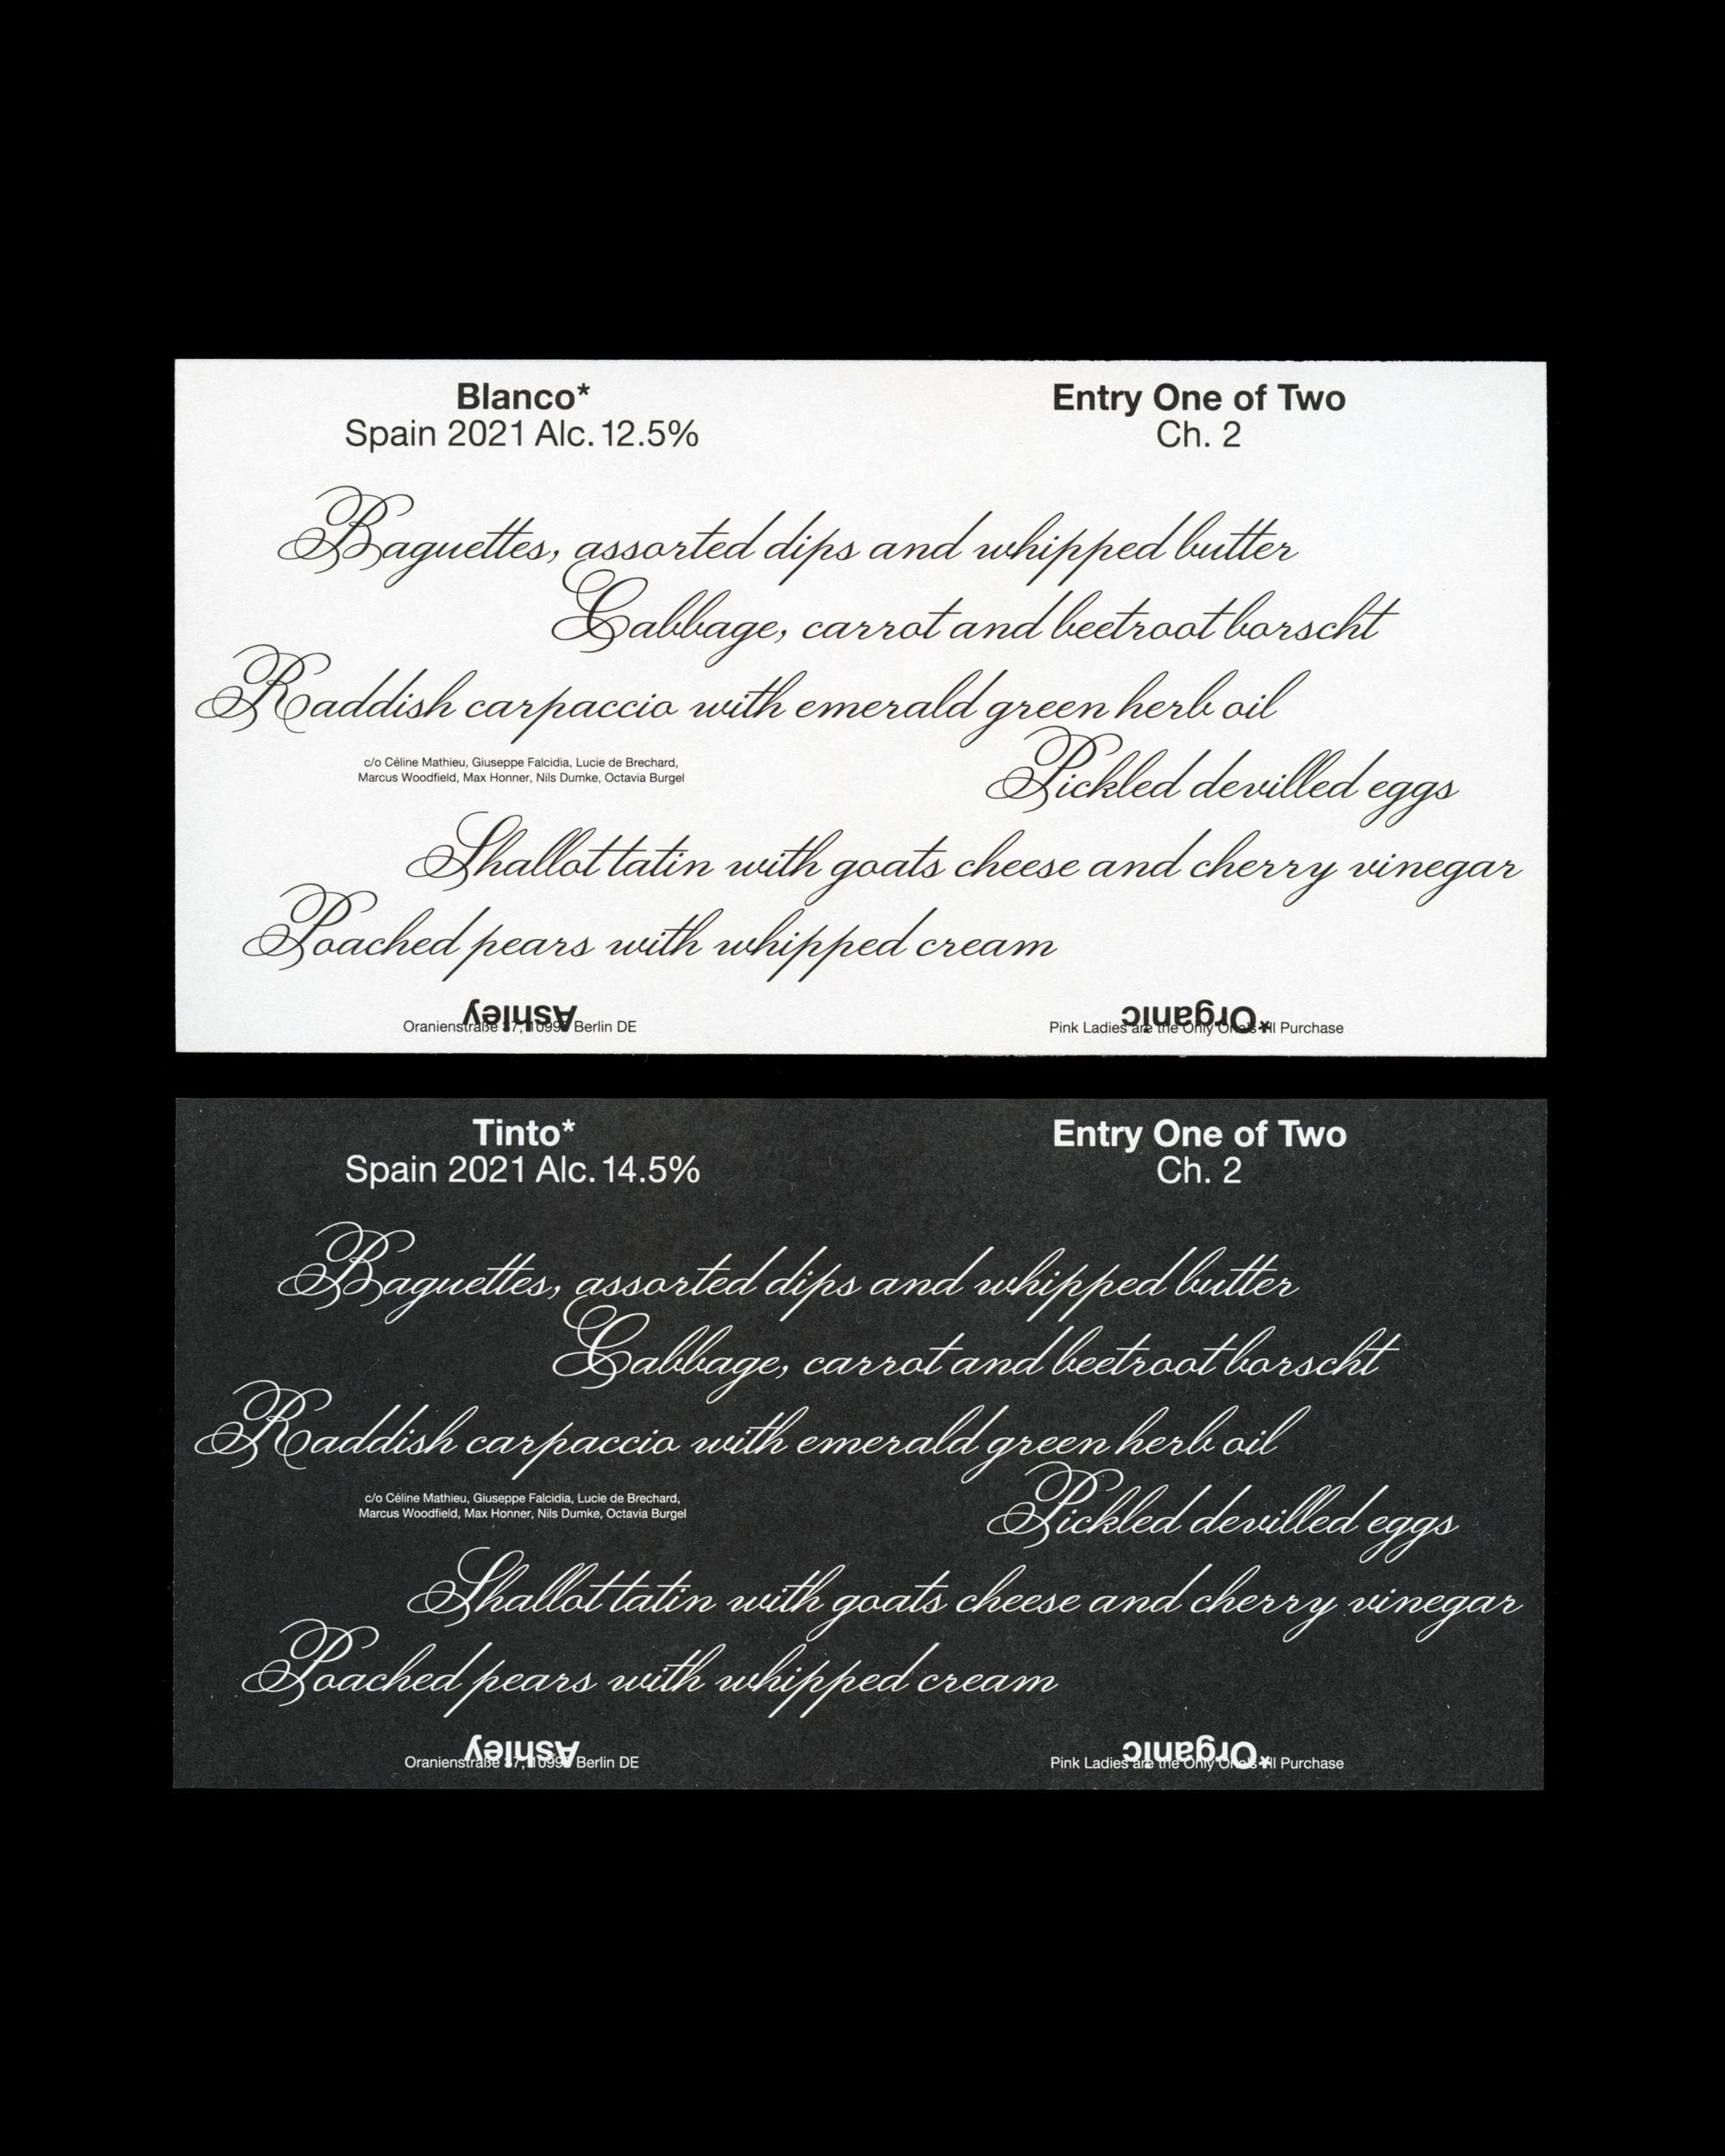 Blanco*
Spain 2021 Alc. 12.5%
Entry One of Two
Ch. 2
Baguettes, assorted dips and whipped butter
Cabbage, carrot and beetroot borscht
Raddish carpaccio with emerald green herb oil
c/o Céline Mathieu, Giuseppe Falcidia, Lucie de Brechard,
Marcus Woodfield, Max Honner, Nils Dumke, Octavia Burgel
Pickled devilled eggs
Shallot tatin with goats cheese and cherry vinegar
Poached pears with whipped cream
Ashley
Oranienstraße 37, Berlin DE
*Organic
Pink Ladies are the Only Purchase
Tinto*
Spain 2021 Alc. 14.5%
Entry One of Two
Ch. 2
Baguettes, assorted dips and whipped butter
Cabbage, carrot and beetroot borscht
Raddish carpaccio with emerald green herb oil
c/o Céline Mathieu, Giuseppe Falcidia, Lucie de Brechard,
Marcus Woodfield, Max Honner, Nils Dumke, Octavia Burgel
Pickled devilled eggs
Shallot tatin with goats cheese and cherry vinegar
Poached pears with whipped cream
Ashley
Oranienstraße 37, Berlin DE
*Organic
Pink Ladies are the Only Purchase